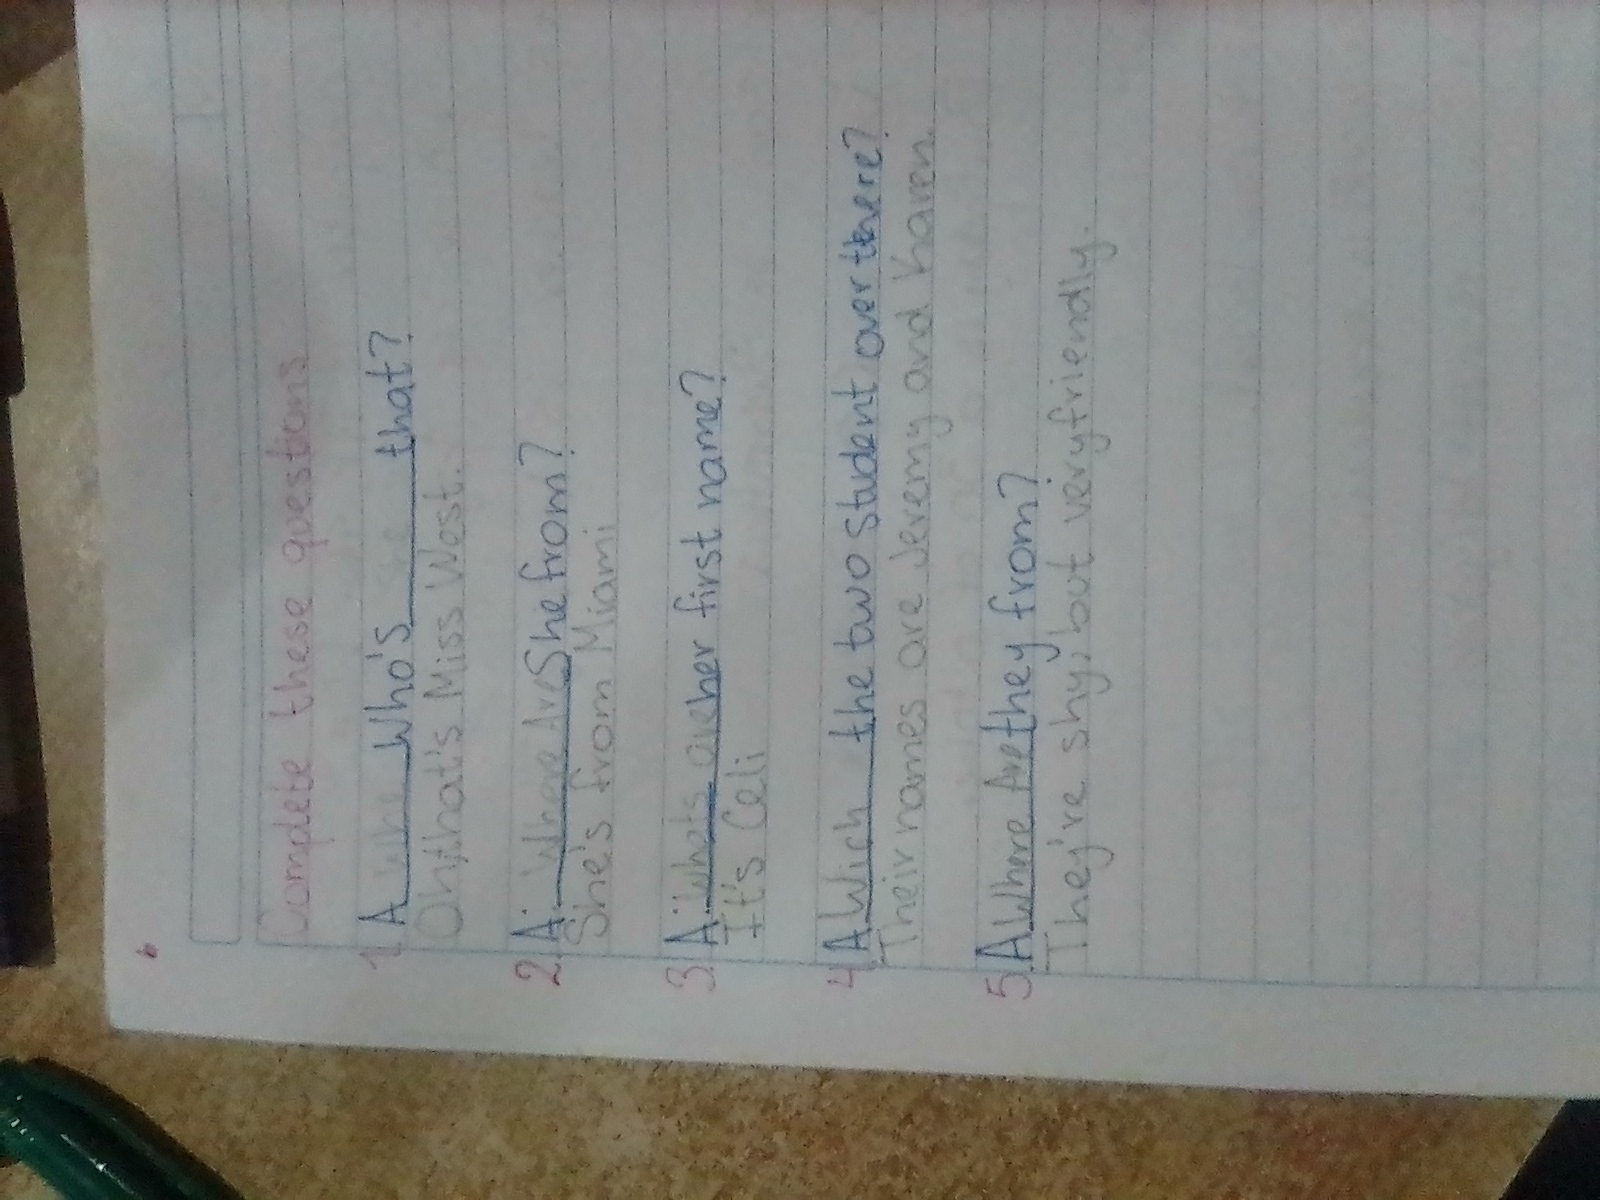 6
Complete these questions
1. A Who's that?
Oh, that's Miss West.
2. A: Where Are She from?
She's from Miami
3. A: Whats her first name?
It's Celi
4. A Wich the two student over there?
Their names are Jeremy and Karen
5. A Where Are they from?
They're shy, but very friendly.